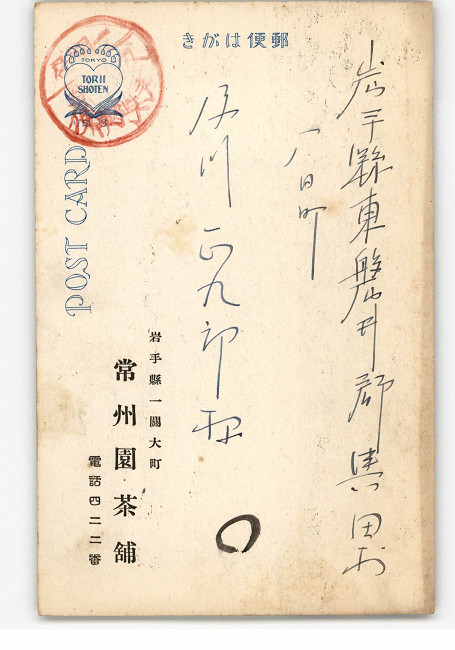 郵便はがき
岩手縣東磐井郡興田村
八日町
及川正九郎様
岩手縣一關大町
常州園茶舗
電話四二二番
TOKYO
TORII
SHOTEN
POST CARD